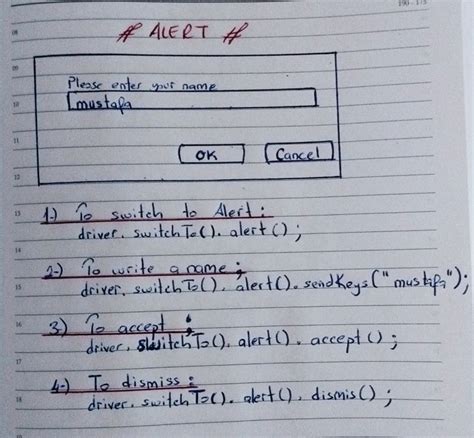 190-175
# ALERT #
08
09
Please enter your name
10
mustafa
11
OK Cancel
12
13
1-) To switch to Alert:
driver. switchTo(). alert();
14
2-) To write a name;
15
driver. switchTo(). alert(). sendKeys("mustafa");
16
3) To accept;
driver. switchTo(). alert(). accept();
17
4-) To dismiss:
18
driver. switchTo(). alert(). dismis();